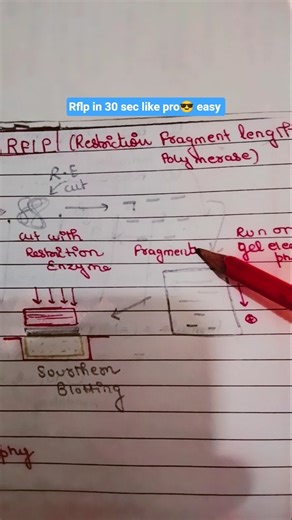 Rflp in 30 sec like pro😎 easy
RFLP (Restriction Fragment length
Polymerase)
R.E
cut
cut with
Restriction
Enzyme
Fragments
Run on
gel elec
ph
Sourthern
Blotting
phy